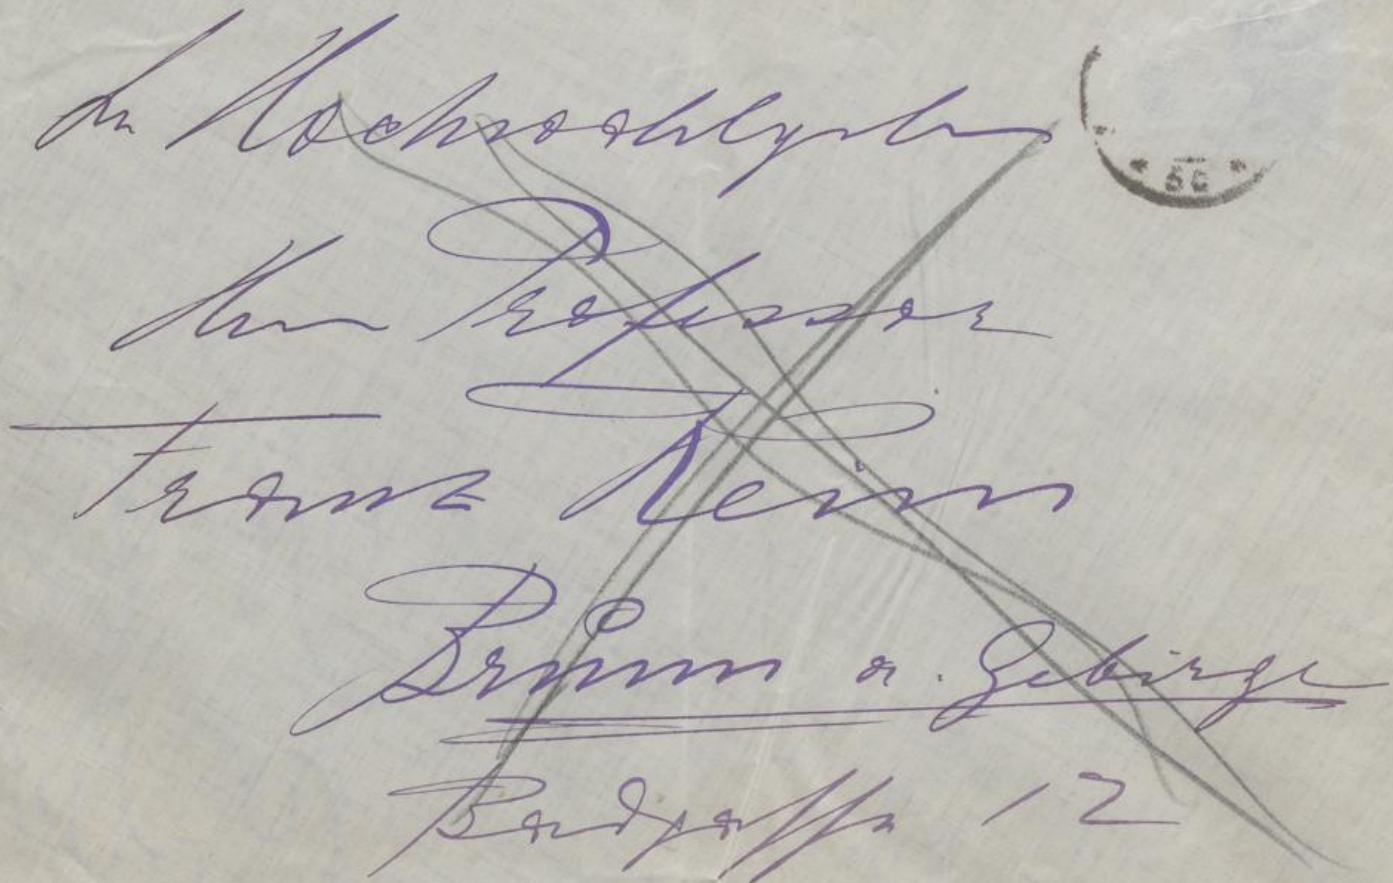 Sr. Hochwohlgeboren
Herrn Professor
Franz Keim
Brunn a. Gebirge
Badgasse 12